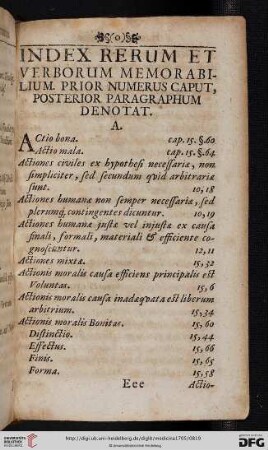 §(o)§
INDEX RERUM ET
VERBORUM MEMORABI-
LIUM. PRIOR NUMERUS CAPUT,
POSTERIOR PARAGRAPHUM
DENOTAT.
A.
ACtio bona. cap. 15. §. 60
Actio mala. cap. 15. §. 64
Actiones civiles ex hypothesi necessariæ, non
simpliciter, sed secundum quid arbitrariæ
sunt. 10, 18
Actiones humanæ non semper necessariæ, sed
plerumq; contingentes dicuntur. 10, 19
Actiones humanæ justæ vel injustæ ex causa
finali, formali, materiali & efficiente co-
gnoscuntur. 12, 11
Actiones mixtæ. 15, 32
Actionis moralis causa efficiens principalis est
Voluntas. 15, 6
Actionis moralis causa inadæqvata est liberum
arbitrium. 15, 34
Actionis moralis Bonitas. 15, 60
Distinctio. 15, 44
Effectus. 15, 66
Finis. 15, 65
Forma. 15, 58
Eee Actio-
http://digi.ub.uni-heidelberg.de/diglit/meisn1705/0819
UNIVERSITÄTS-
BIBLIOTHEK
HEIDELBERG
© Universitätsbibliothek Heidelberg
gefördert durch die
DFG